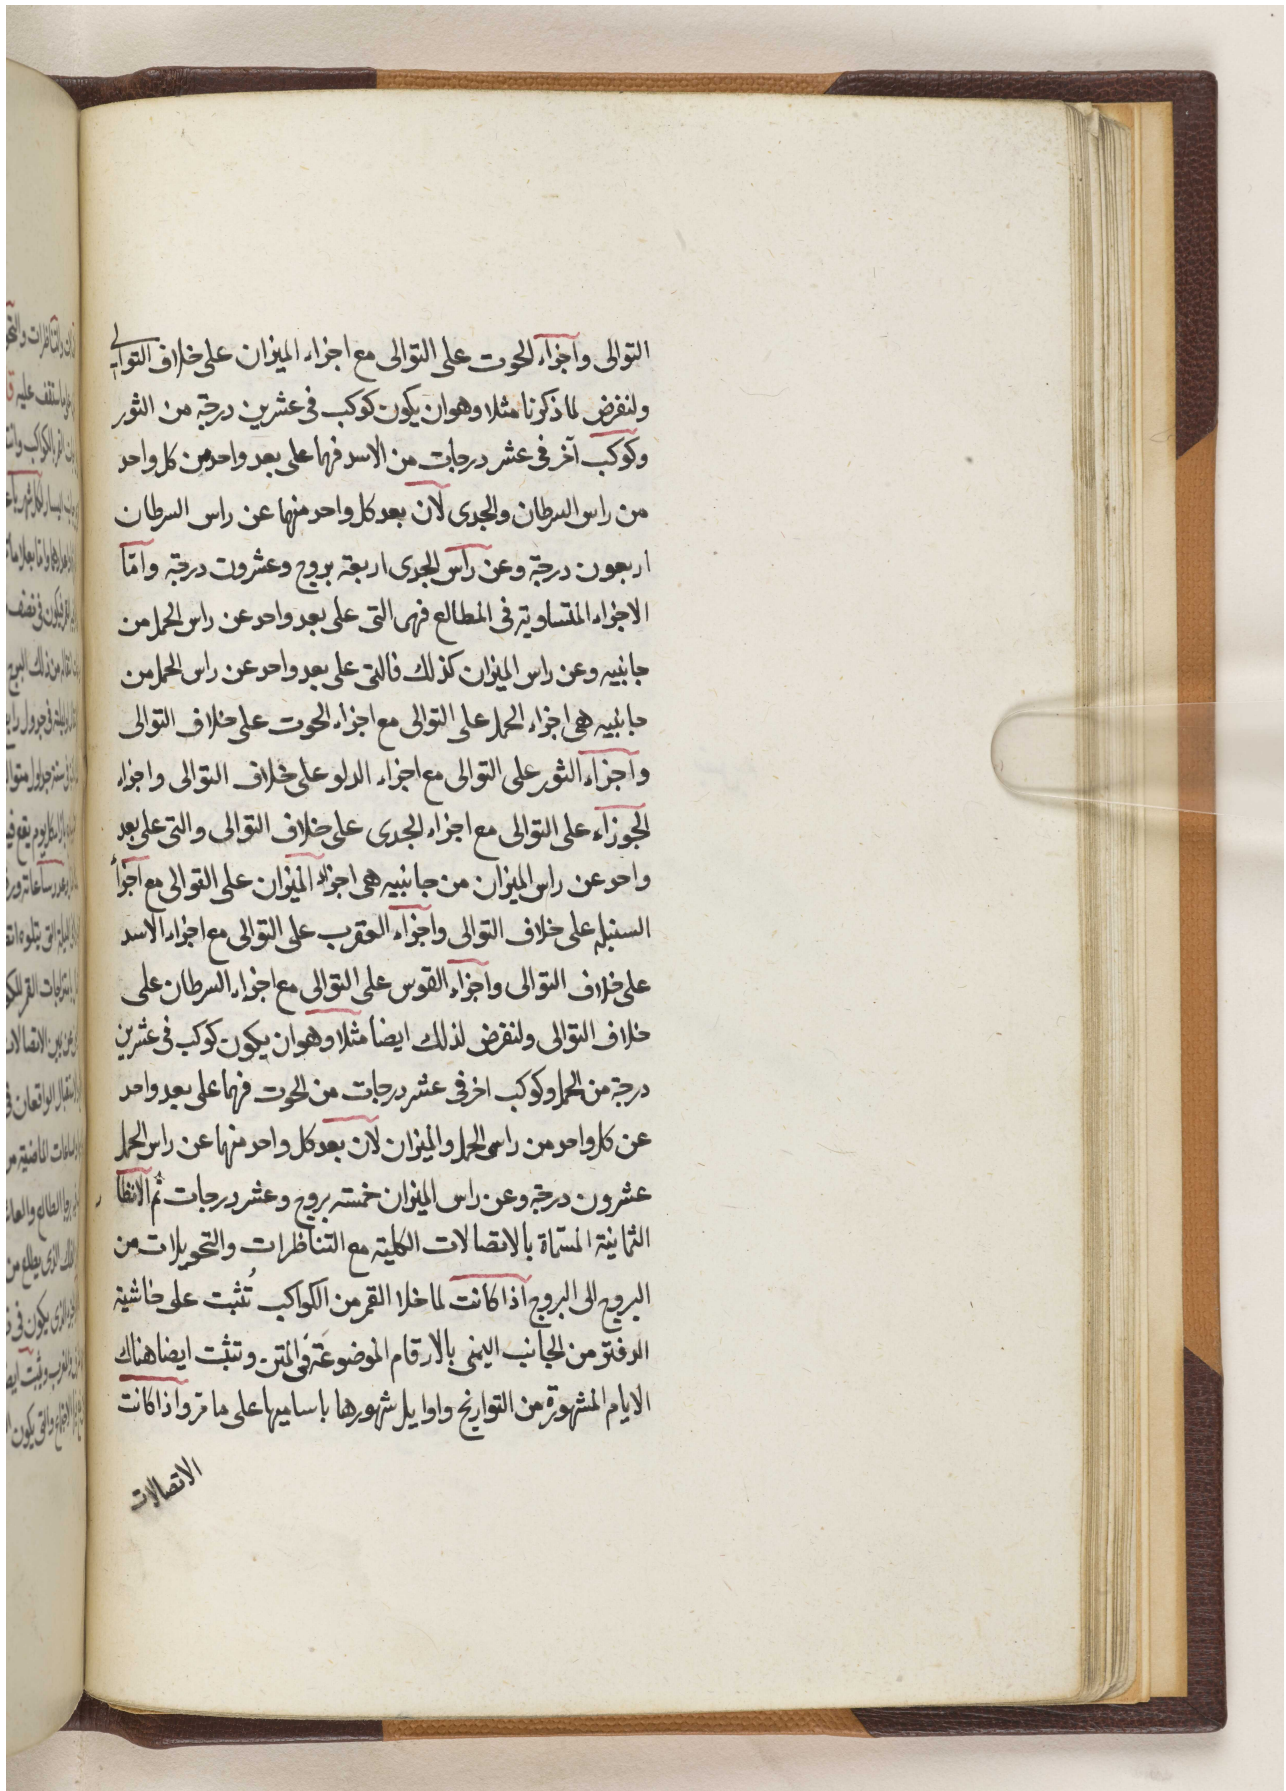 التوالى واجزاء الحوت على التوالى مع اجزاء الميزان على خلاف التوالى
ولنفرض لما ذكرنا مثلا وهو ان يكون كوكب فى عشرين درجة من الثور
وكوكب آخر فى عشر درجات من الاسد فهما على بعد واحد من كل واحد
من راس السرطان والجدى لان بعد كل واحد منهما عن راس السرطان
اربعون درجة وعن راس الجدى اربعة بروج وعشرون درجة وامّا
الاجزاء المتساوية فى المطالع فهى التى على بعد واحد عن راس الحمل من
جانبيه وعن راس الميزان كذلك فالتى على بعد واحد عن راس الحمل من
جانبيه هى اجزاء الحمل على التوالى مع اجزاء الحوت على خلاف التوالى
واجزاء الثور على التوالى مع اجزاء الدلو على خلاف التوالى واجزاء
الجوزاء على التوالى مع اجزاء الجدى على خلاف التوالى والتى على بعد
واحد عن راس الميزان من جانبيه هى اجزاء الميزان على التوالى مع اجزأ
السنبله على خلاف التوالى واجزاء العقرب على التوالى مع اجزاء الاسد
على خلاف التوالى واجزاء القوس على التوالى مع اجزاء السرطان على
خلاف التوالى ولنفرض لذلك ايضا مثلا وهو ان يكون كوكب فى عشرين
درجة من الحمل وكوكب اخر فى عشر درجات من الحوت فهما على بعد واحد
عن كل واحد من راسى الحمل والميزان لان بعد كل واحد منهما عن راس الحمل
عشرون درجة وعن راس الميزان خمسة بروج وعشر درجات ثم الانظا
الثمانية المسمّاة بالاتصالات الكلية مع التناظرات والتحويلات من
البروج الى البروج اذا كانت لما خلا القمر من الكواكب تُثبت على حاشية
الدفتر من الجانب اليمنى بالارقام الموضوعَة فى المتن وتثبت ايضا هناك
الايام المشهورة من التواريخ واوايل شهورها باساميها على ما مر واذا كانت
الاتصالات